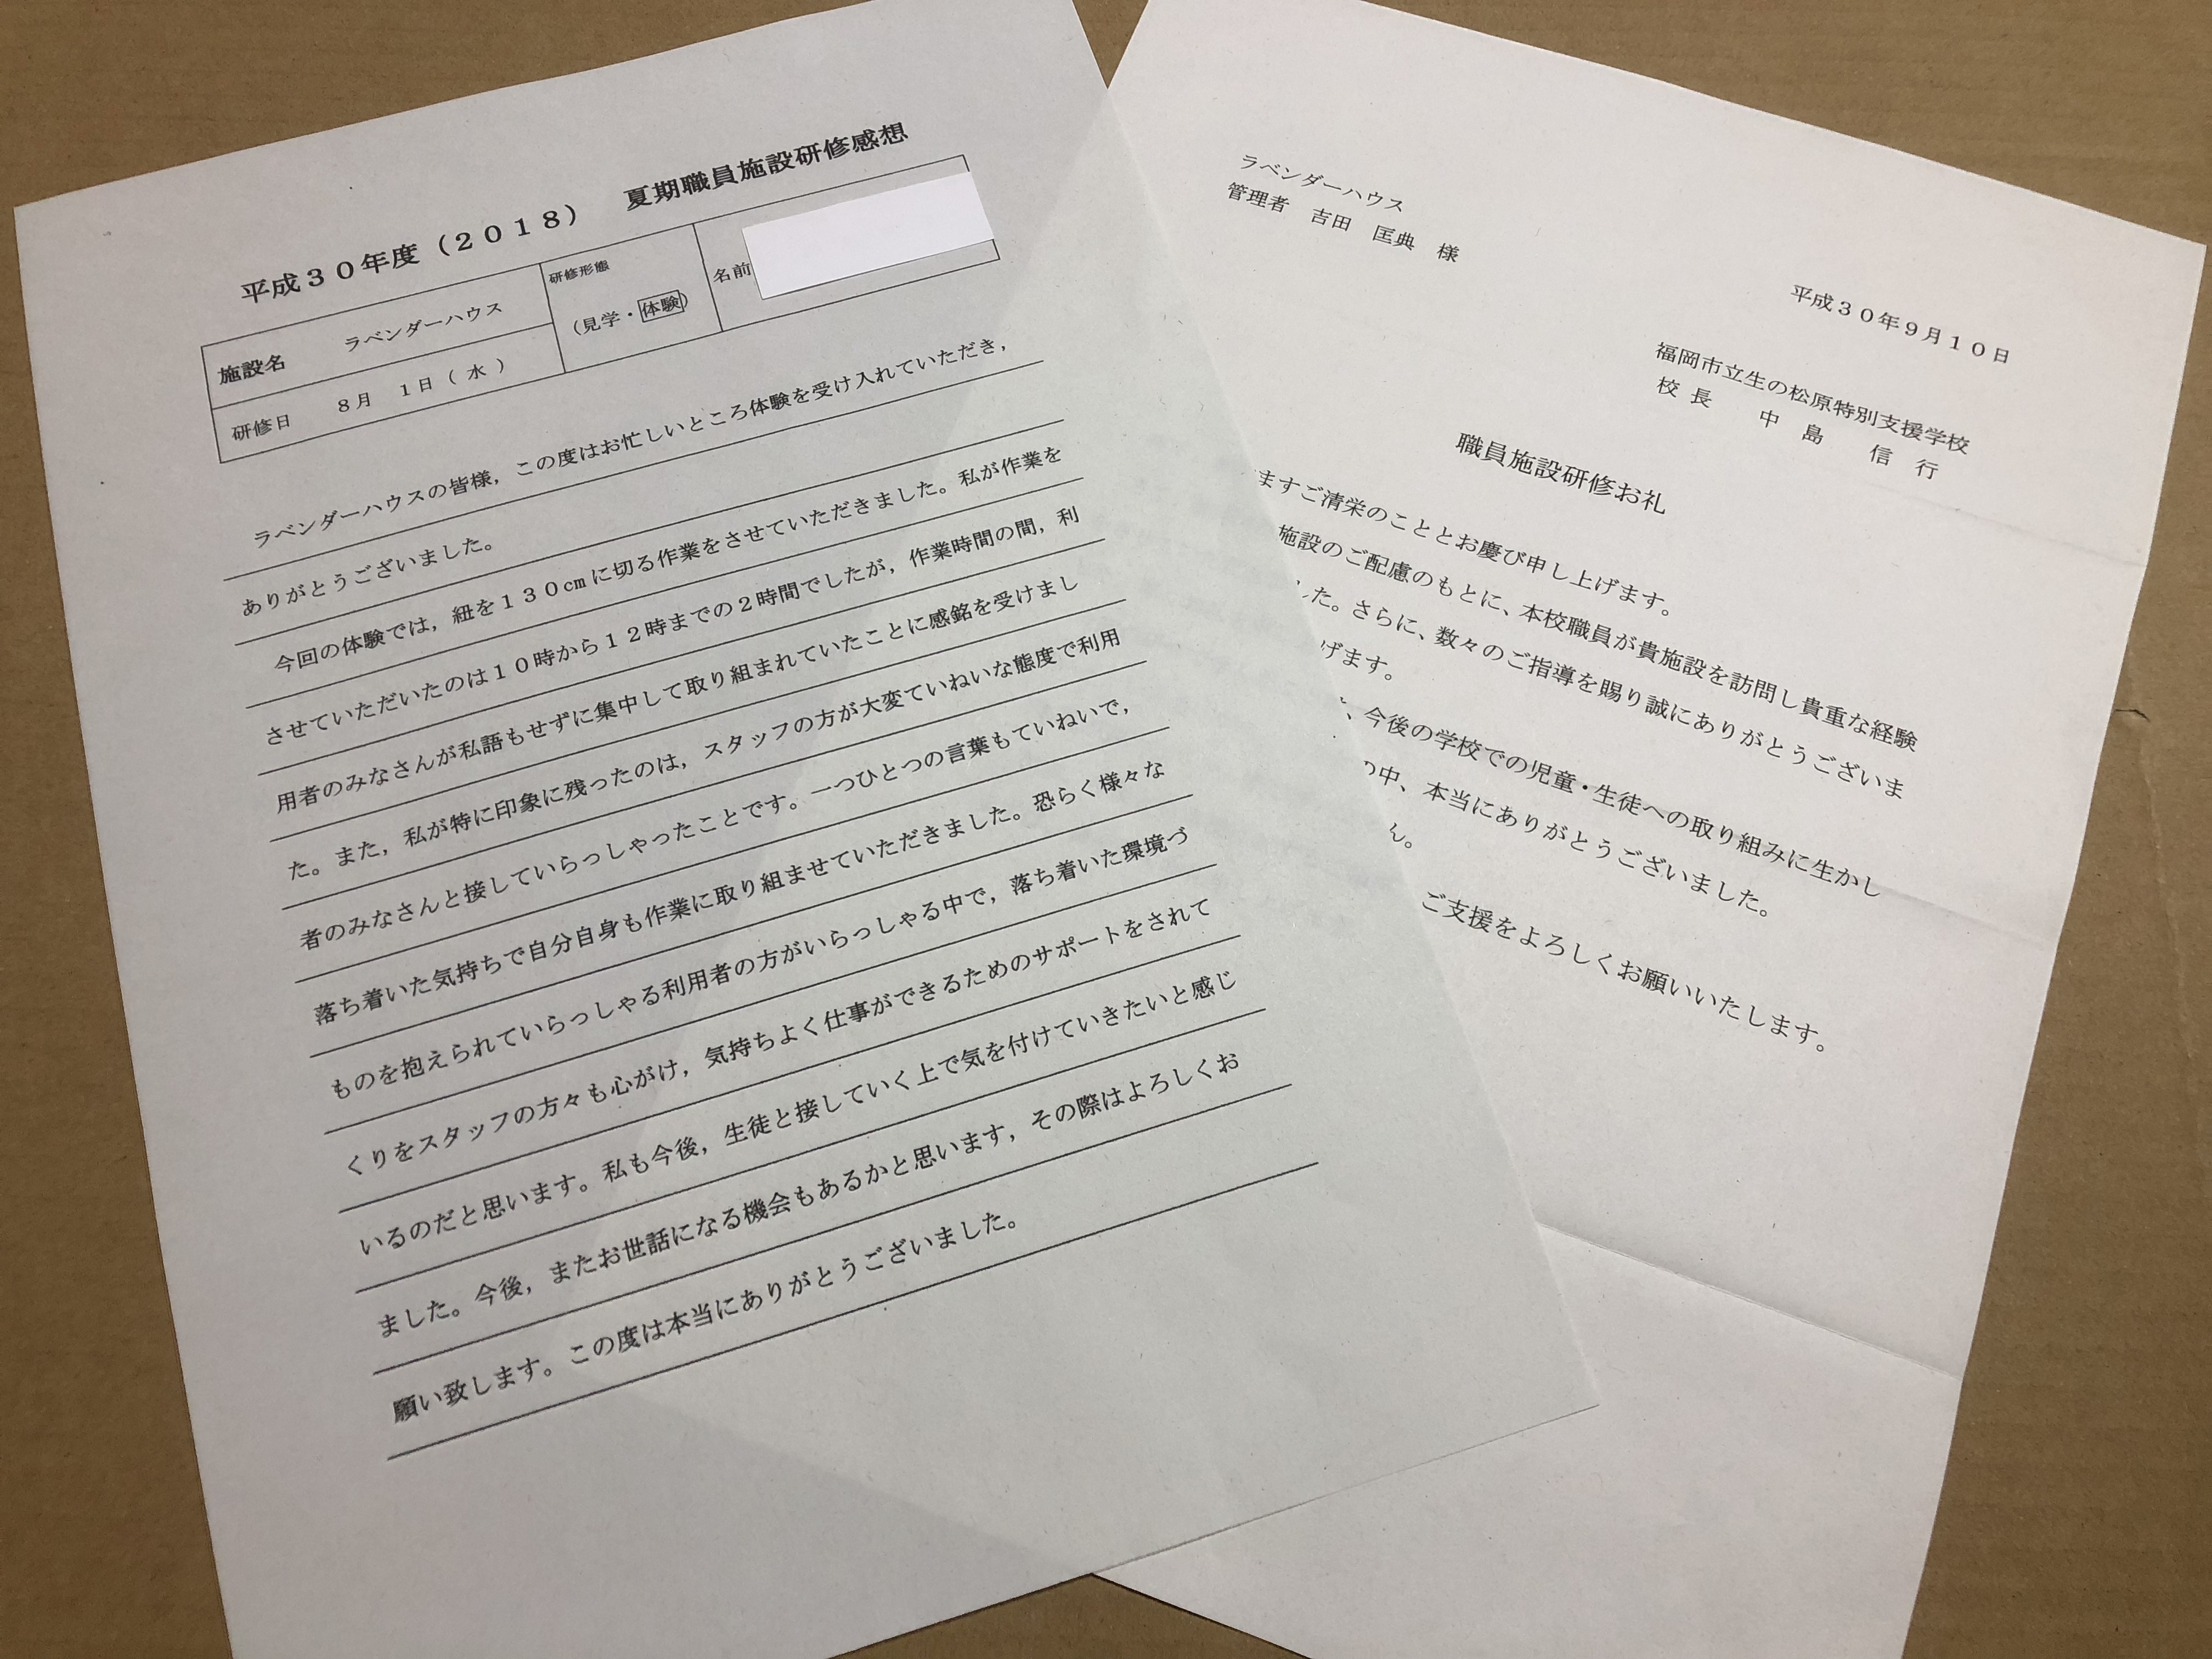 平成３０年度（２０１８）　夏期職員施設研修感想
施設名　ラベンダーハウス
研修日　８月　１日（水）
研修形態
（見学・体験）
名前
ラベンダーハウスの皆様，この度はお忙しいところ体験を受け入れていただき，
ありがとうございました。
今回の体験では，紐を１３０cmに切る作業をさせていただきました。私が作業を
させていただいたのは１０時から１２時までの２時間でしたが，作業時間の間，利
用者のみなさんが私語もせずに集中して取り組まれていたことに感銘を受けまし
た。また，私が特に印象に残ったのは，スタッフの方が大変ていねいな態度で利用
者のみなさんと接していらっしゃったことです。一つひとつの言葉もていねいで，
落ち着いた気持ちで自分自身も作業に取り組ませていただきました。恐らく様々な
ものを抱えられていらっしゃる利用者の方がいらっしゃる中で，落ち着いた環境づ
くりをスタッフの方々も心がけ，気持ちよく仕事ができるためのサポートをされて
いるのだと思います。私も今後，生徒と接していく上で気を付けていきたいと感じ
ました。今後，またお世話になる機会もあるかと思います，その際はよろしくお
願い致します。この度は本当にありがとうございました。
ラベンダーハウス
管理者　吉田　匡典　様
平成３０年９月１０日
福岡市立生の松原特別支援学校
校長　中島　信行
職員施設研修お礼
ますご清栄のこととお慶び申し上げます。
施設のご配慮のもとに、本校職員が貴施設を訪問し貴重な経験
した。さらに、数々のご指導を賜り誠にありがとうございま
げます。
、今後の学校での児童・生徒への取り組みに生かし
の中、本当にありがとうございました。
ん。
ご支援をよろしくお願いいたします。